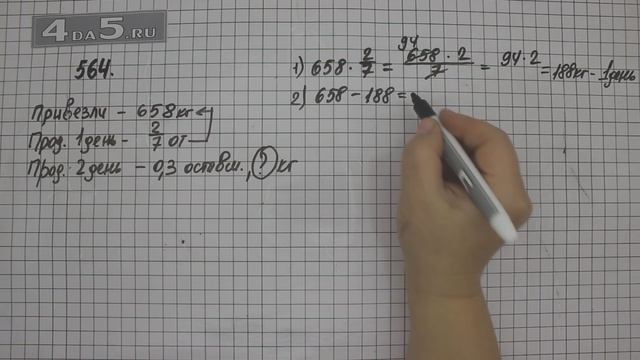 4DA5.RU
564.
Привезли – 658 кг
Прод. 1 день – 2/7 от
Прод. 2 день – 0,3 оставш., ? кг
1) 658 · 2/7 = 94 658 · 2 / 7 = 94 · 2 = 188 кг – 1 день
2) 658 – 188 =